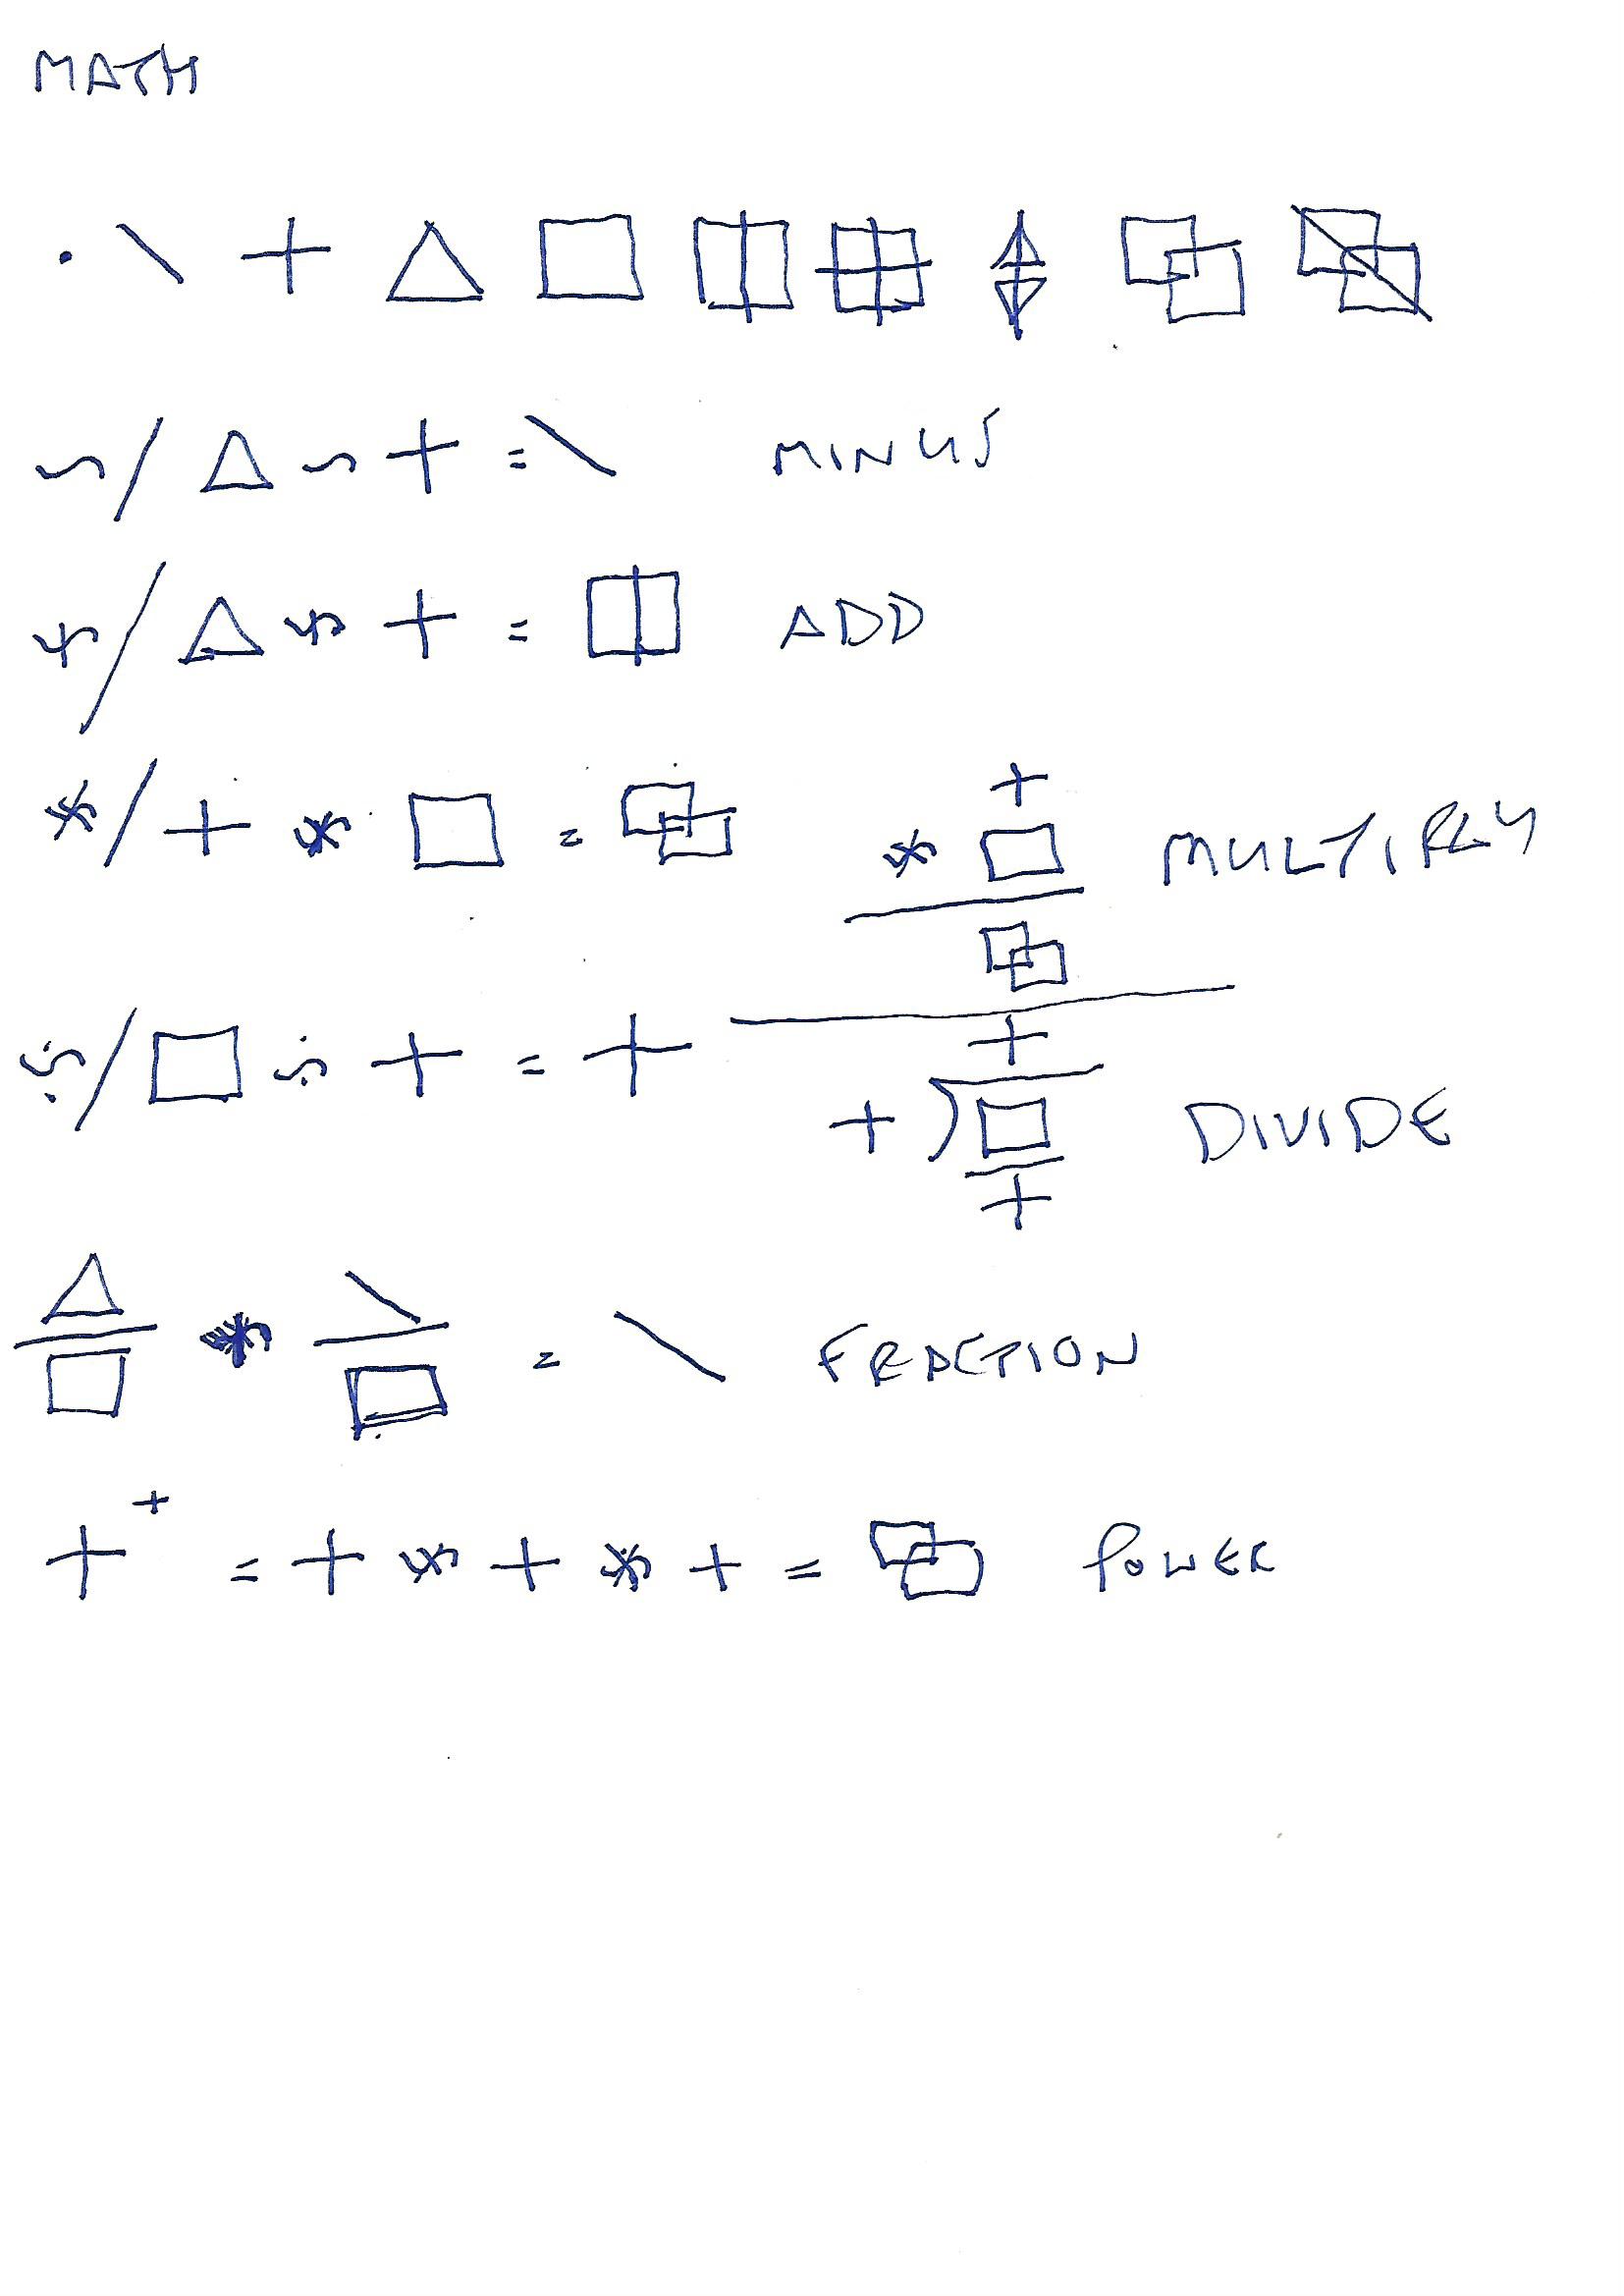 MATH
· \ + △ □
~/ △ ~ + = \ MINUS
/ △ + = ADD
/ + □ = MULTIPLY
+
□
/ □ + = +
+
+ ) □ DIVIDE
+
△ \
= \ FRACTION
□ □
+⁺ = + + + = POWER